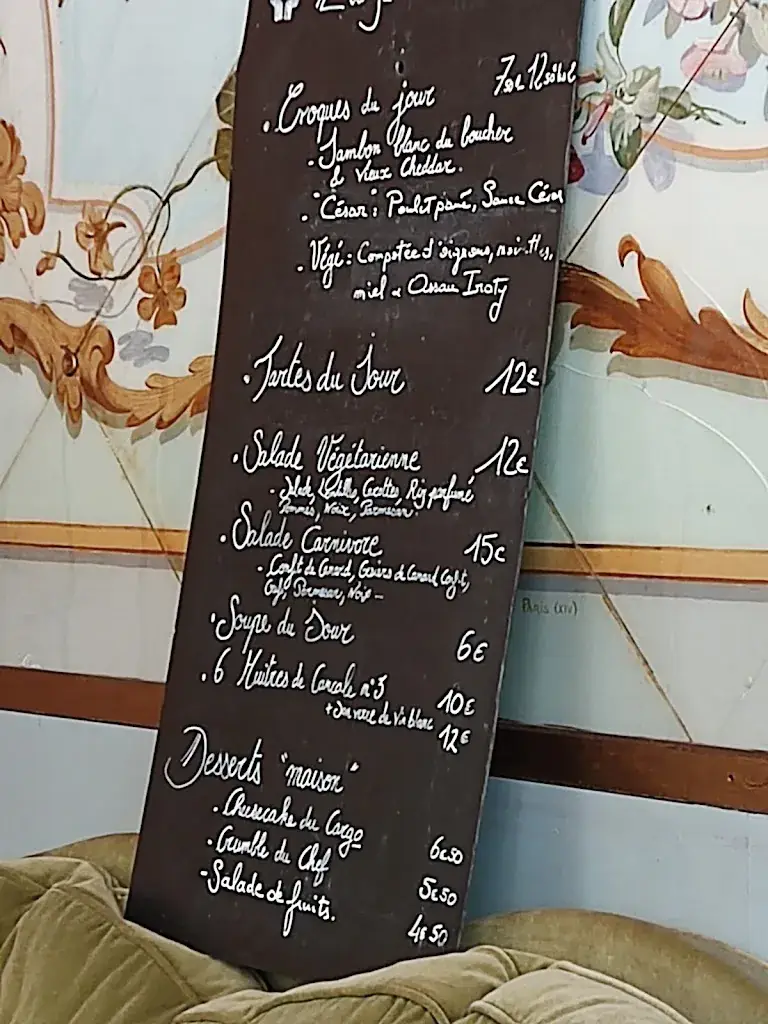 • Croques du jour
- Jambon blanc du boucher
& vieux Cheddar.
- "César": Poulet pané, Sauce César
- Végé: Compotée d'oignons, noisettes,
miel & Ossau Iraty
• Tartes du Jour 12€
• Salade Végétarienne 12€
- Salade, Lentilles, Carottes, Riz parfumé
Pommes, Noix, Parmesan.
• Salade Carnivore 15€
- Confit de Canard, Gésiers de Canard Confit,
Oeuf, Parmesan, Noix...
• Soupe du Jour 6€
• 6 Huîtres de Cancale n°3 10€
+ Son verre de vin blanc 12€
Desserts "maison"
• Cheesecake du Cargo 6€50
• Crumble du Chef 5€50
- Salade de fruits. 4€50
Paris (XIV)